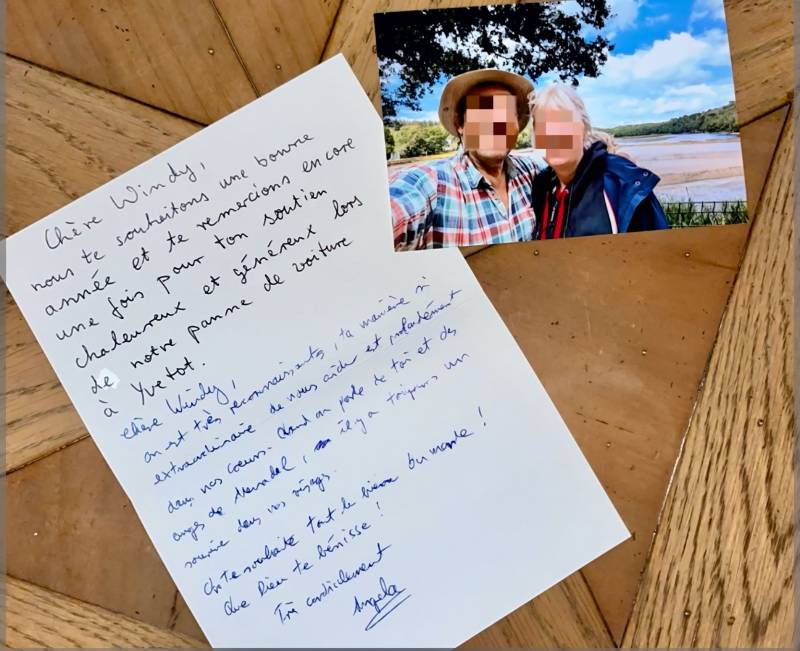 Chère Windy,
nous te souhaitons une bonne
année et te remercions encore
une fois pour ton soutien
chaleureux et généreux lors
de notre panne de voiture
à Yvetot.
Chère Windy,
on est très reconnaissants, ta manière si
extraordinaire de nous aider est profondément
dans nos cœurs. Quand on parle de toi et des
anges de, il y a toujours un
sourire dans nos visages.
On te souhaite tout le bien du monde !
Que Dieu te bénisse !
Très cordialement
Angela